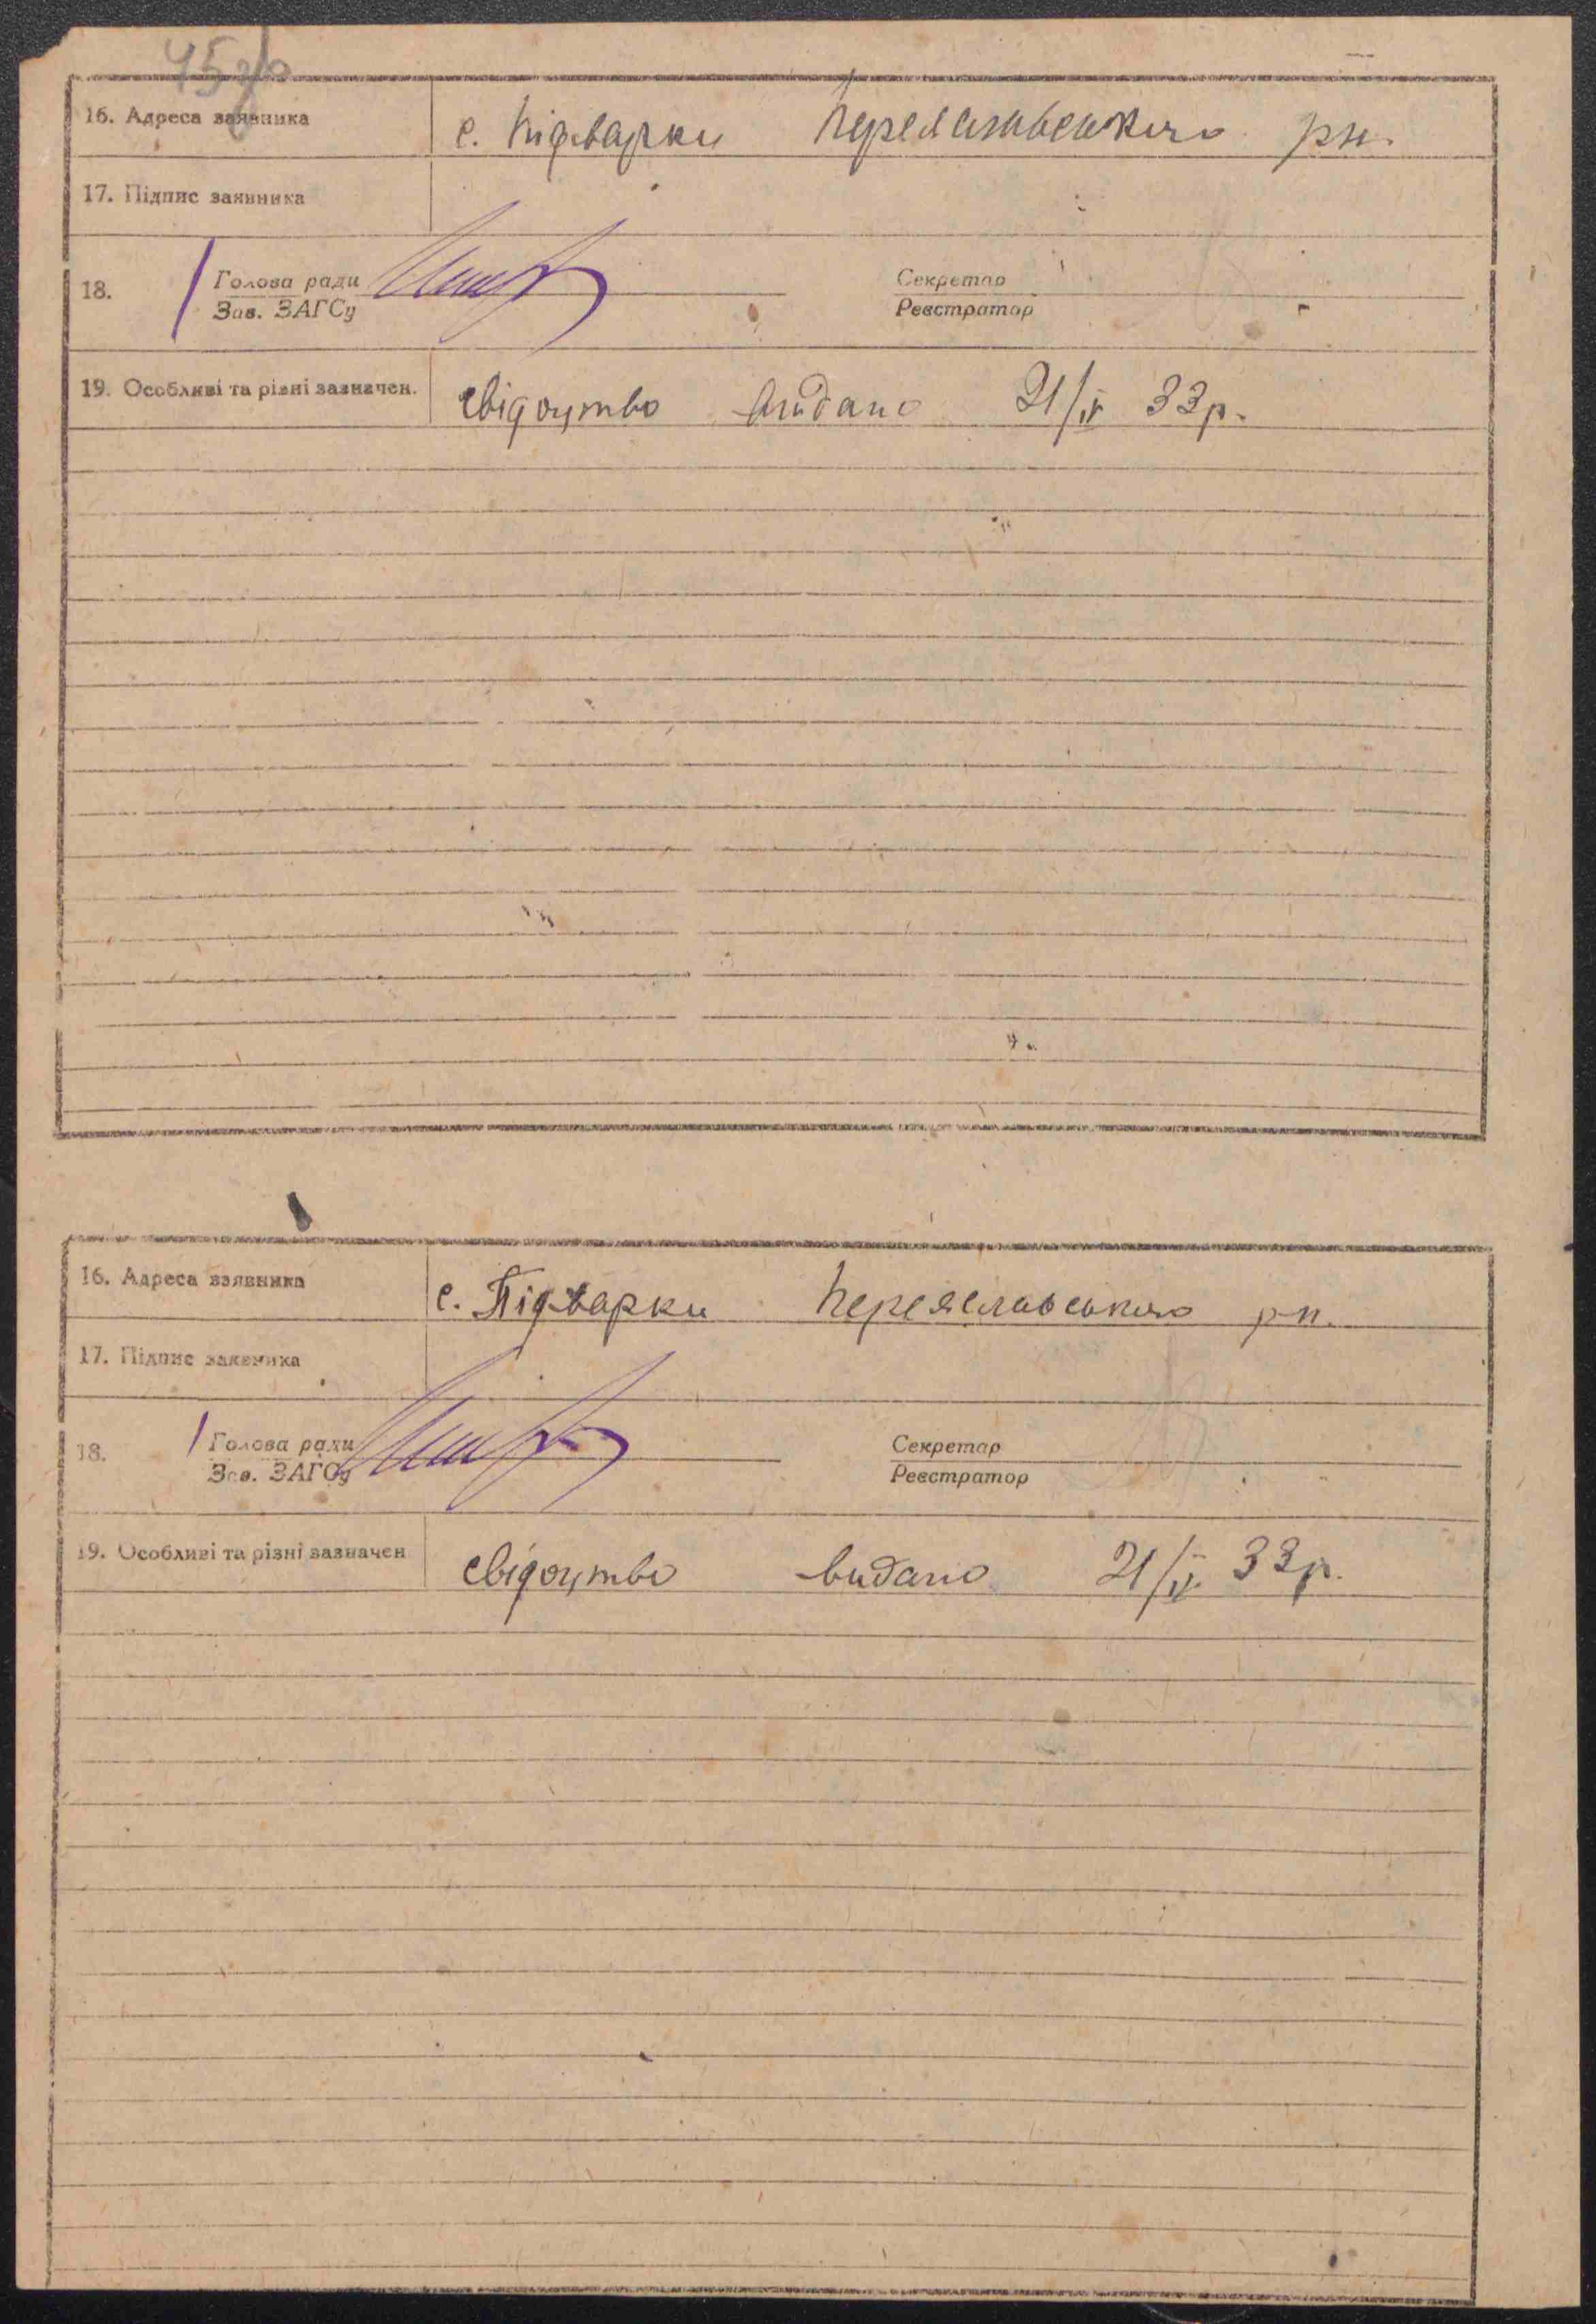 16. Адреса заявника с. Підварки Переяславського рн.
17. Підпис заявника
18. Голова ради Секретар
Зав. ЗАГСу Реєстратор
19. Особливі та різні зазначен. свідоцтво видано 21/IV 33р.
16. Адреса заявника с. Підварки Переяславського р-н.
17. Підпис заявника
18. Голова ради Секретар
Зав. ЗАГСу Реєстратор
19. Особливі та різні зазначен свідоцтво видано 21/IV 33р.